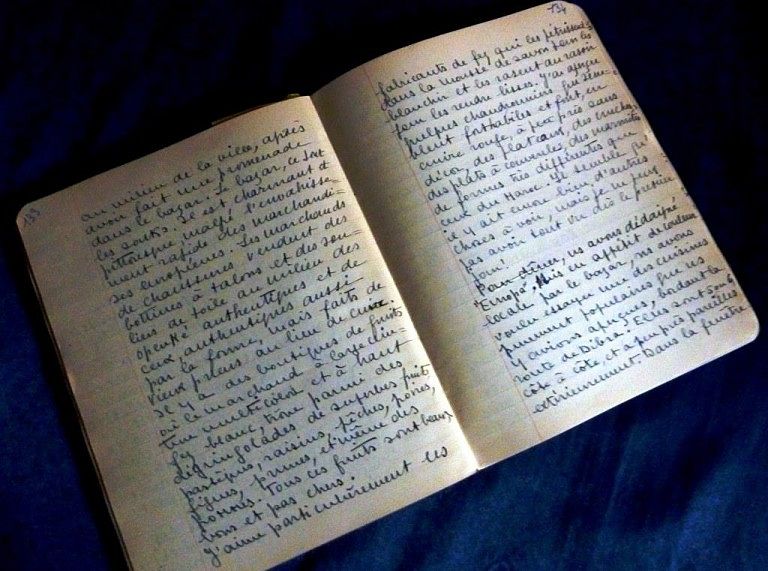 133
au milieu de la ville, après
avoir fait une promenade
dans le bazar. Le bazar, ce sont
les souks. Il est charmant et
pittoresque malgré l'envahisse-
ment rapide des marchandi-
ses européennes. Les marchands
de chaussures vendent des
bottines à talons et des sou-
liers de toile au milieu des
openké authentiques et de
ceux, authentiques aussi
par la forme, mais faits de
vieux pneus au lieu de cuir.
Il y a des boutiques de fruits
où le marchand à large cein-
ture multicolore et à haut
fez blanc, trône parmi des
dégringolades de superbes fruits
pastèques, raisins, pêches, poires,
figues, prunes, et même des
pommes. Tous ces fruits sont beaux
bons et pas chers.
J'aime particulièrement les
134
fabricants de fez qui les pétrissent
dans la mousse de savon pour les
blanchir et les rasent au rasoir
pour les rendre lisses. J'ai aperçu
quelques chaudronniers qui sem-
blent fort habiles et font, en
cuivre rouge, à peu près sans
décor, des plateaux, des cruches,
des plats à couvercles, des marmites
de formes très différentes que
ceux du Maroc. Il semble qu'
il y ait encore bien d'autres
choses à voir, mais je ne peux
pas avoir tout vu dès le premier
jour.
Pour dîner, ns avons dédaigné
"Europa". Mis en appétit de couleur
locale par le bazar, ns avons
voulu essayer une des cuisines
purement populaires que ns
y avions aperçues, badant la
route de Dibra. Elles sont 5 ou 6
côte à côte et à peu près pareilles
extérieurement. Dans la fenêtre